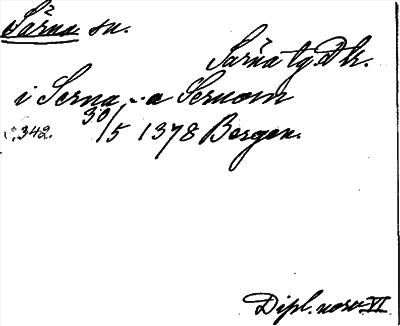 Särna sn.
Särna tg. Dlr.
i Serna .. a Sernom
s. 342. 30/5 1378 Bergen.
Dipl. norv. VI